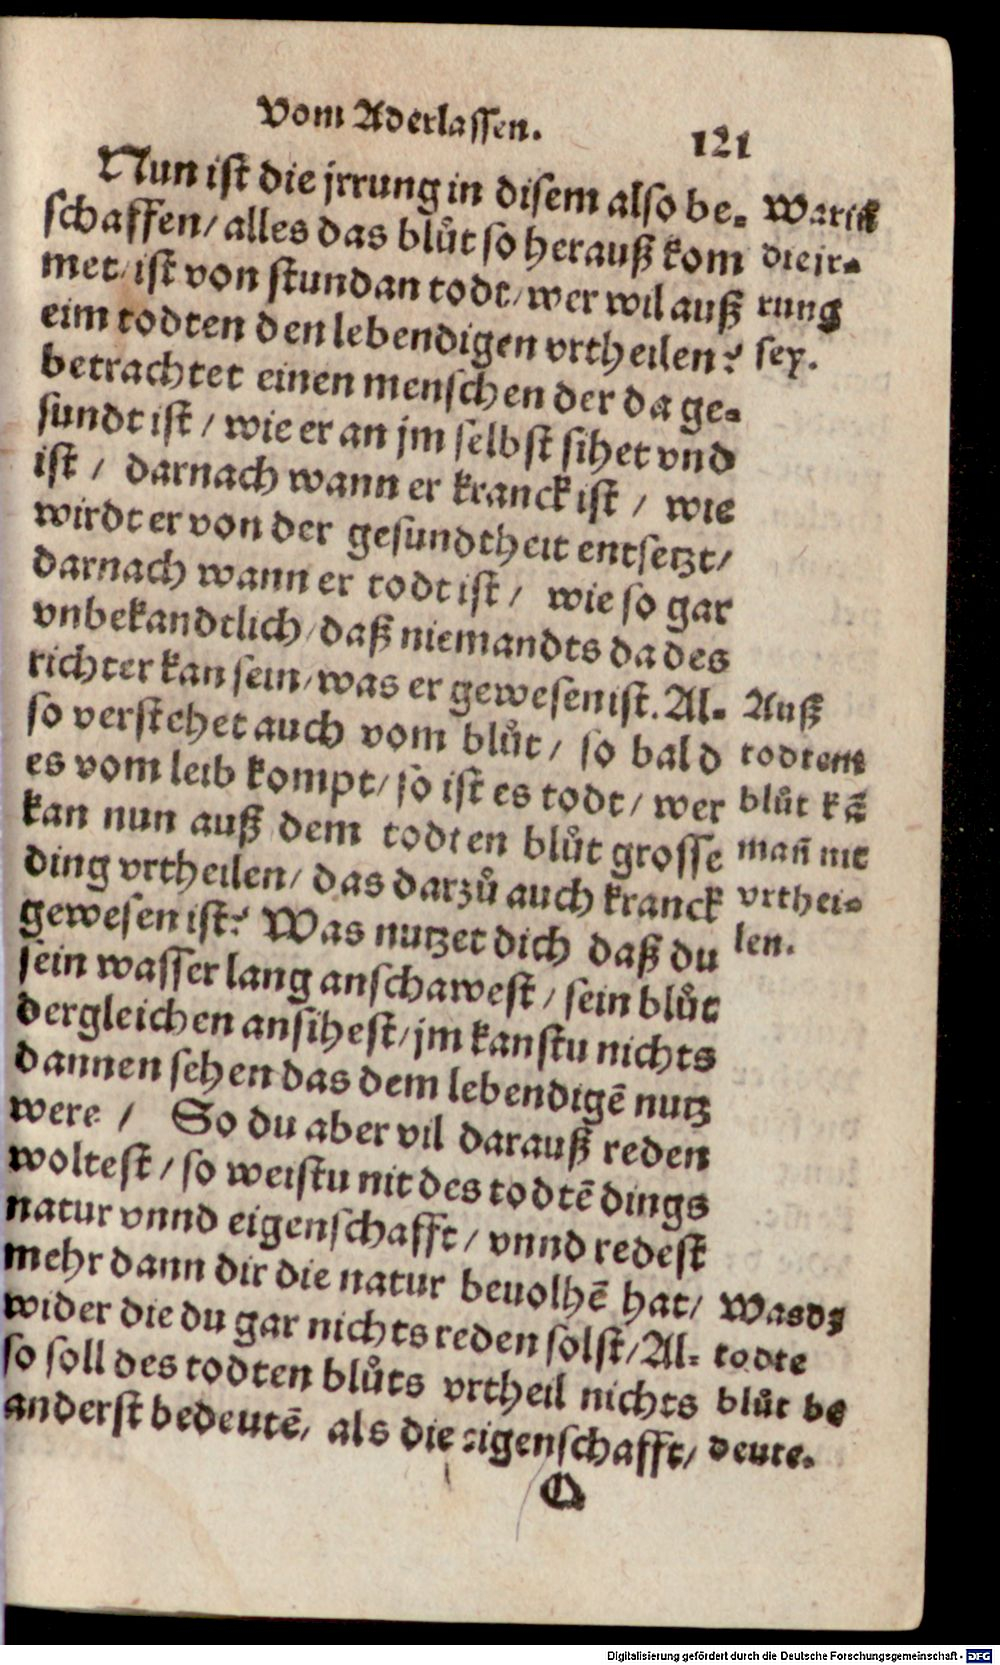 Vom Aderlassen.
121
Nun ist die jrrung in disem also be-
schaffen/ alles das blůt so herauß kom
met/ ist von stundan todt/ wer wil auß
eim todten den lebendigen vrtheilen?
betrachtet einen menschen der da ge-
sundt ist / wie er an jm selbst sihet vnd
ist / darnach wann er kranck ist / wie
wirdt er von der gesundtheit entsetzt/
darnach wann er todt ist / wie so gar
vnbekandtlich/ daß niemandts da des
richter kan sein/ was er gewesen ist. Al-
so verstehet auch vom blůt / so bald
es vom leib kompt/ so ist es todt/ wer
kan nun auß dem todten blůt grosse
ding vrtheilen/ das darzů auch kranck
gewesen ist? Was nutzet dich daß du
sein wasser lang anschawest / sein blůt
dergleichen ansihest/ jm kanstu nichts
dannen sehen das dem lebendigē nutz
were / So du aber vil darauß reden
woltest / so weistu nit des todtē dings
natur vnnd eigenschafft / vnnd redest
mehr dann dir die natur beuolhē hat/
wider die du gar nichts reden solst/ Al-
so soll des todten blůts vrtheil nichts
anderst bedeutē/ als die eigenschafft/
Q
Warin
die jr-
rung
sey.
Auß
todtem
blůt kā
man̄ nit
vrthei-
len.
Was dz
todte
blůt be
deute.
Digitalisierung gefördert durch die Deutsche Forschungsgemeinschaft - DFG